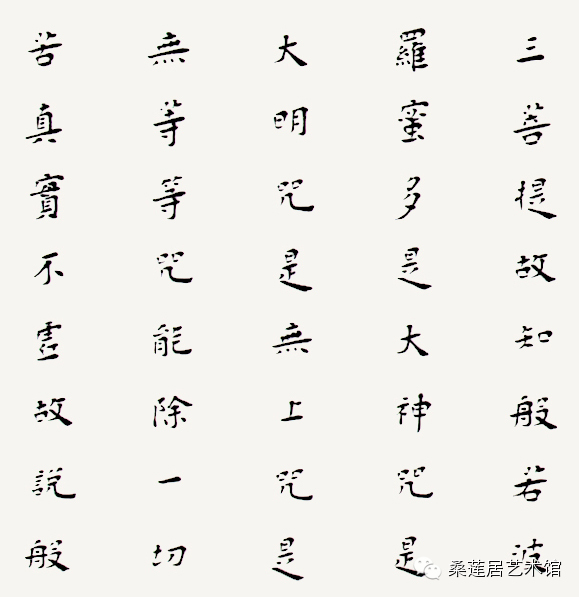 三菩提故知般若波
羅蜜多是大神咒是
大明咒是無上咒是
無等等咒能除一切
苦真實不虛故說般
桑莲居艺术馆